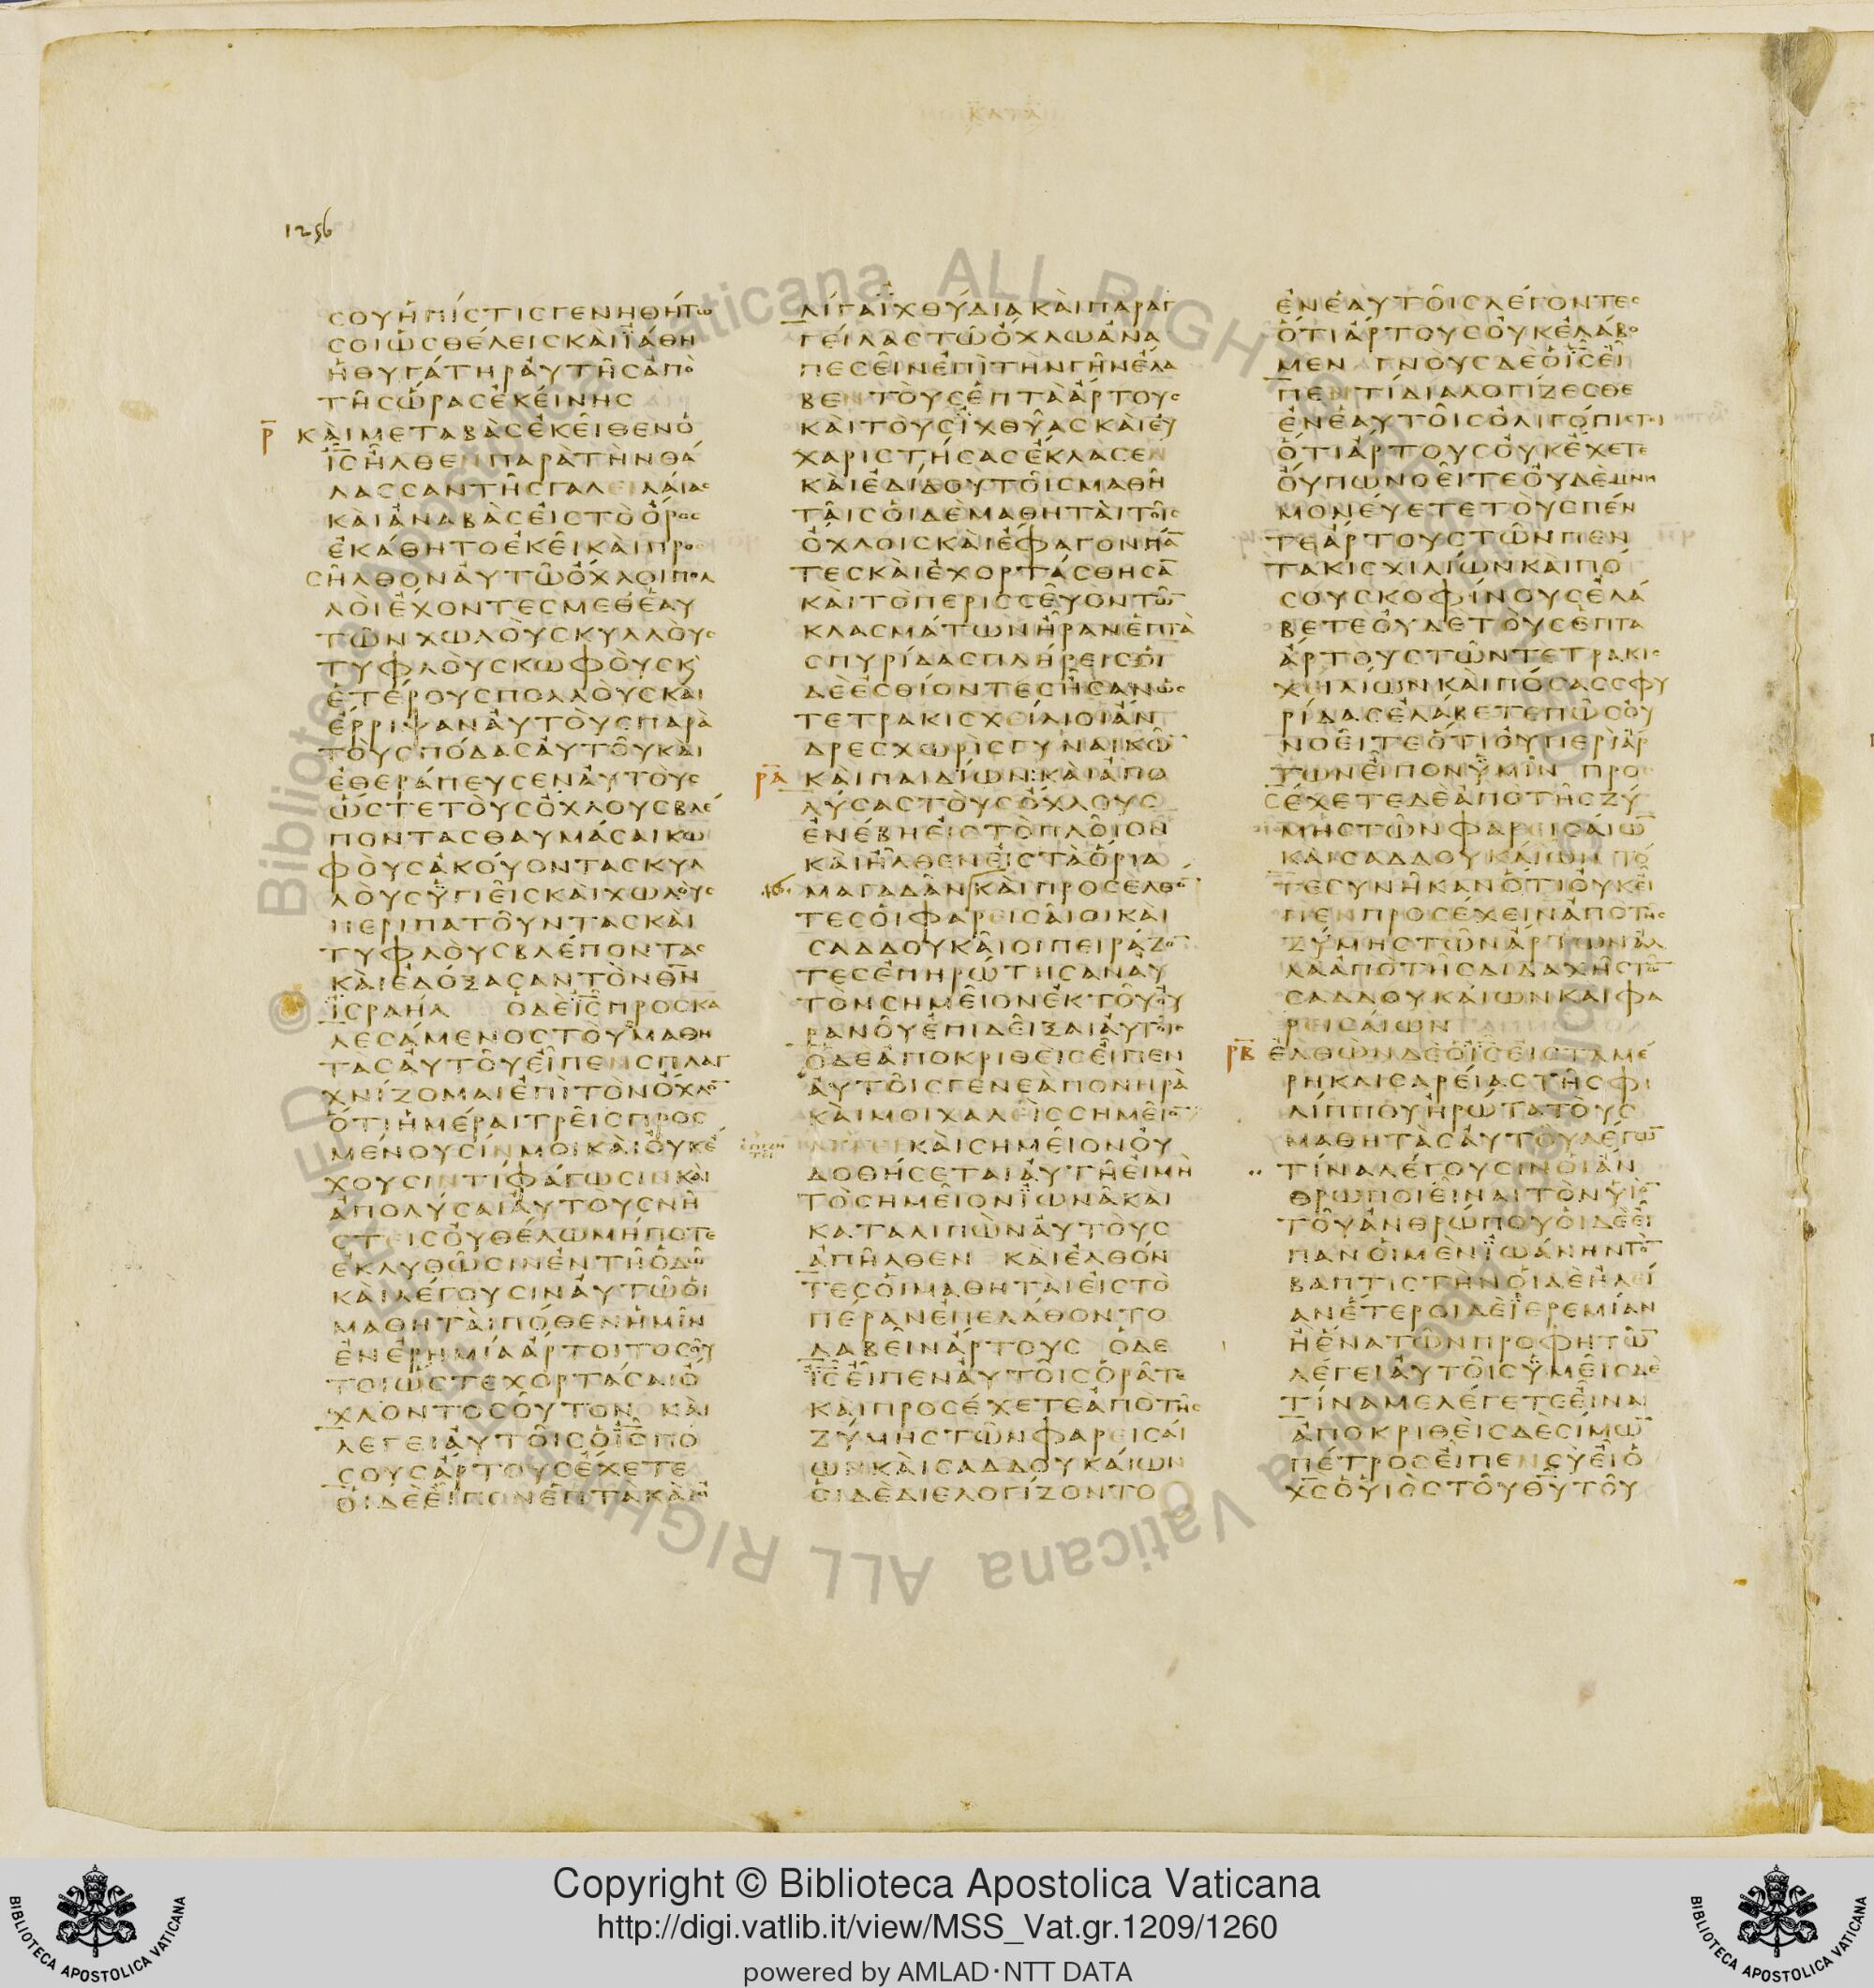 ΚΑΤΑ
1256
ΣΟΥΗΠΙΣΤΙΣΓΕΝΗΘΗΤΩ
ΣΟΙΩΣΘΕΛΕΙΣΚΑΙΪΑΘΗ
ΗΘΥΓΑΤΗΡΑΥΤΗΣΑΠΟ
ΤΗΣΩΡΑΣΕΚΕΙΝΗΣ
Ρ̅ ΚΑΙΜΕΤΑΒΑΣΕΚΕΙΘΕΝΟ
Ι̅Σ̅ΗΛΘΕΝΠΑΡΑΤΗΝΘΑ
ΛΑΣΣΑΝΤΗΣΓΑΛΕΙΛΑΙΑΣ
ΚΑΙΑΝΑΒΑΣΕΙΣΤΟΟΡΟΣ
ΕΚΑΘΗΤΟΕΚΕΙΚΑΙΠΡΟ
ΣΗΛΘΟΝΑΥΤΩΟΧΛΟΙΠΟΛ
ΛΟΙΕΧΟΝΤΕΣΜΕΘΕΑΥ
ΤΩΝΧΩΛΟΥΣΚΥΛΛΟΥΣ
ΤΥΦΛΟΥΣΚΩΦΟΥΣΚ
ΕΤΕΡΟΥΣΠΟΛΛΟΥΣΚΑΙ
ΕΡΡΙΨΑΝΑΥΤΟΥΣΠΑΡΑ
ΤΟΥΣΠΟΔΑΣΑΥΤΟΥΚΑΙ
ΕΘΕΡΑΠΕΥΣΕΝΑΥΤΟΥΣ
ΩΣΤΕΤΟΥΣΟΧΛΟΥΣΒΛΕ
ΠΟΝΤΑΣΘΑΥΜΑΣΑΙΚΩ
ΦΟΥΣΑΚΟΥΟΝΤΑΣΚΥΛ
ΛΟΥΣΫΓΙΕΙΣΚΑΙΧΩΛΟΥΣ
ΠΕΡΙΠΑΤΟΥΝΤΑΣΚΑΙ
ΤΥΦΛΟΥΣΒΛΕΠΟΝΤΑΣ
ΚΑΙΕΔΟΞΑΣΑΝΤΟΝΘ̅Ν̅
ΪΣΡΑΗΛ ΟΔΕΙ̅Σ̅ΠΡΟΣΚΑ
ΛΕΣΑΜΕΝΟΣΤΟΥΣΜΑΘΗ
ΤΑΣΑΥΤΟΥΕΙΠΕΝΣΠΛΑΓ
ΧΝΙΖΟΜΑΙΕΠΙΤΟΝΟΧΛΟ̅
ΟΤΙΗΜΕΡΑΙΤΡΕΙΣΠΡΟΣ
ΜΕΝΟΥΣΙΝΜΟΙΚΑΙΟΥΚΕ
ΧΟΥΣΙΝΤΙΦΑΓΩΣΙΝΚΑΙ
ΑΠΟΛΥΣΑΙΑΥΤΟΥΣΝΗ
ΣΤΕΙΣΟΥΘΕΛΩΜΗΠΟΤΕ
ΕΚΛΥΘΩΣΙΝΕΝΤΗΟΔΩ
ΚΑΙΛΕΓΟΥΣΙΝΑΥΤΩΟΙ
ΜΑΘΗΤΑΙΠΟΘΕΝΗΜΙΝ
ΕΝΕΡΗΜΙΑΑΡΤΟΙΤΟΣΟΥ
ΤΟΙΩΣΤΕΧΟΡΤΑΣΑΙΟ
ΧΛΟΝΤΟΣΟΥΤΟΝ ΚΑΙ
ΛΕΓΕΙΑΥΤΟΙΣΟΙ̅Σ̅ΠΟ
ΣΟΥΣΑΡΤΟΥΣΕΧΕΤΕ
ΟΙΔΕΕΙΠΟΝΕΠΤΑΚΑΙΟ
ΛΙΓΑΪΧΘΥΔΙΑΚΑΙΠΑΡΑΓ
ΓΕΙΛΑΣΤΩΟΧΛΩΑΝΑ
ΠΕΣΕΙΝΕΠΙΤΗΝΓΗΝΕΛΑ
ΒΕΝΤΟΥΣΕΠΤΑΑΡΤΟΥΣ
ΚΑΙΤΟΥΣΪΧΘΥΑΣΚΑΙΕΥ
ΧΑΡΙΣΤΗΣΑΣΕΚΛΑΣΕΝ
ΚΑΙΕΔΙΔΟΥΤΟΙΣΜΑΘΗ
ΤΑΙΣΟΙΔΕΜΑΘΗΤΑΙΤΟΙΣ
ΟΧΛΟΙΣΚΑΙΕΦΑΓΟΝΠΑ̅
ΤΕΣΚΑΙΕΧΟΡΤΑΣΘΗΣΑ̅
ΚΑΙΤΟΠΕΡΙΣΣΕΥΟΝΤΩ̅
ΚΛΑΣΜΑΤΩΝΗΡΑΝΕΠΤΑ
ΣΠΥΡΙΔΑΣΠΛΗΡΕΙΣΟΙ
ΔΕΕΣΘΙΟΝΤΕΣΗΣΑΝΩΣ
ΤΕΤΡΑΚΙΣΧΕΙΛΙΟΙΑΝ
ΔΡΕΣΧΩΡΙΣΓΥΝΑΙΚΩ̅
ΡΑ̅ ΚΑΙΠΑΙΔΙΩΝ:ΚΑΙΑΠΟ
ΛΥΣΑΣΤΟΥΣΟΧΛΟΥΣ
ΕΝΕΒΗΕΙΣΤΟΠΛΟΙΟΝ
ΚΑΙΗΛΘΕΝΕΙΣΤΑΟΡΙΑ
ΜΑΓΑΔΑΝΚΑΙΠΡΟΣΕΛΘΟ̅
ΤΕΣΟΙΦΑΡΕΙΣΑΙΟΙΚΑΙ
ΣΑΔΔΟΥΚΑΙΟΙΠΕΙΡΑΖΟ̅
ΤΕΣΕΠΗΡΩΤΗΣΑΝΑΥ
ΤΟΝΣΗΜΕΙΟΝΕΚΤΟΥΟΥ
ΡΑΝΟΥΕΠΙΔΕΙΞΑΙΑΥΤΟΙΣ
ΟΔΕΑΠΟΚΡΙΘΕΙΣΕΙΠΕΝ
ΑΥΤΟΙΣΓΕΝΕΑΠΟΝΗΡΑ
ΚΑΙΜΟΙΧΑΛΕΙΣΣΗΜΕΙΟ̅
ΚΑΙΣΗΜΕΙΟΝΟΥ
ΔΟΘΗΣΕΤΑΙΑΥΤΗΕΙΜΗ
ΤΟΣΗΜΕΙΟΝΪΩΝΑΚΑΙ
ΚΑΤΑΛΙΠΩΝΑΥΤΟΥΣ
ΑΠΗΛΘΕΝ ΚΑΙΕΛΘΟΝ
ΤΕΣΟΙΜΑΘΗΤΑΙΕΙΣΤΟ
ΠΕΡΑΝΕΠΕΛΑΘΟΝΤΟ
ΛΑΒΕΙΝΑΡΤΟΥΣ ΟΔΕ
Ι̅Σ̅ΕΙΠΕΝΑΥΤΟΙΣΟΡΑΤΕ
ΚΑΙΠΡΟΣΕΧΕΤΕΑΠΟΤΗΣ
ΖΥΜΗΣΤΩΝΦΑΡΕΙΣΑΙ
ΩΝΚΑΙΣΑΔΔΟΥΚΑΙΩΝ
ΟΙΔΕΔΙΕΛΟΓΙΖΟΝΤΟ
ΕΝΕΑΥΤΟΙΣΛΕΓΟΝΤΕΣ
ΟΤΙΑΡΤΟΥΣΟΥΚΕΛΑΒΟ
ΜΕΝ ΓΝΟΥΣΔΕΟΙ̅Σ̅ΕΙ
ΠΕΝΤΙΔΙΑΛΟΓΙΖΕΣΘΕ
ΕΝΕΑΥΤΟΙΣΟΛΙΓΟΠΙΣΤΟΙ
ΟΤΙΑΡΤΟΥΣΟΥΚΕΧΕΤΕ
ΟΥΠΩΝΟΕΙΤΕΟΥΔΕΜΝΗ
ΜΟΝΕΥΕΤΕΤΟΥΣΠΕΝ
ΤΕΑΡΤΟΥΣΤΩΝΠΕΝ
ΤΑΚΙΣΧΙΛΙΩΝΚΑΙΠΟ
ΣΟΥΣΚΟΦΙΝΟΥΣΕΛΑ
ΒΕΤΕΟΥΔΕΤΟΥΣΕΠΤΑ
ΑΡΤΟΥΣΤΩΝΤΕΤΡΑΚΙΣ
ΧΕΙΛΙΩΝΚΑΙΠΟΣΑΣΣΦΥ
ΡΙΔΑΣΕΛΑΒΕΤΕΠΩΣΟΥ
ΝΟΕΙΤΕΟΤΙΟΥΠΕΡΙΑΡ
ΤΩΝΕΙΠΟΝΫΜΙΝ ΠΡΟ
ΣΕΧΕΤΕΔΕΑΠΟΤΗΣΖΥ
ΜΗΣΤΩΝΦΑΡΕΙΣΑΙΩ̅
ΚΑΙΣΑΔΔΟΥΚΑΙΩΝΤΟ
ΤΕΣΥΝΗΚΑΝΟΤΙΟΥΚΕΙ
ΠΕΝΠΡΟΣΕΧΕΙΝΑΠΟΤΗΣ
ΖΥΜΗΣΤΩΝΑΡΤΩΝΑΛ
ΛΑΑΠΟΤΗΣΔΙΔΑΧΗΣΤΩ̅
ΣΑΔΔΟΥΚΑΙΩΝΚΑΙΦΑ
ΡΕΙΣΑΙΩΝ
ΡΒ̅ ΕΛΘΩΝΔΕΟΙ̅Σ̅ΕΙΣΤΑΜΕ
ΡΗΚΑΙΣΑΡΕΙΑΣΤΗΣΦΙ
ΛΙΠΠΟΥΗΡΩΤΑΤΟΥΣ
ΜΑΘΗΤΑΣΑΥΤΟΥΛΕΓΩ̅
ΤΙΝΑΛΕΓΟΥΣΙΝΟΙΑΝ
ΘΡΩΠΟΙΕΙΝΑΙΤΟΝΥΙΟ̅
ΤΟΥΑΝΘΡΩΠΟΥΟΙΔΕΕΙ
ΠΑΝΟΙΜΕΝΪΩΑΝΗΝΤΟ̅
ΒΑΠΤΙΣΤΗΝΟΙΔΕΗΛΕΙ
ΑΝΕΤΕΡΟΙΔΕΪΕΡΕΜΙΑΝ
ΗΕΝΑΤΩΝΠΡΟΦΗΤΩ̅
ΛΕΓΕΙΑΥΤΟΙΣΫΜΕΙΣΔΕ
ΤΙΝΑΜΕΛΕΓΕΤΕΕΙΝΑΙ
ΑΠΟΚΡΙΘΕΙΣΔΕΣΙΜΩ̅
ΠΕΤΡΟΣΕΙΠΕΝΣΥΕΙΟ
Χ̅Σ̅ΟΥΙΟΣΤΟΥΘ̅Υ̅ΤΟΥ
© Biblioteca Apostolica Vaticana ALL RIGHTS RESERVED
Copyright © Biblioteca Apostolica Vaticana
http://digi.vatlib.it/view/MSS_Vat.gr.1209/1260
powered by AMLAD·NTT DATA
BIBLIOTECA APOSTOLICA VATICANA
BIBLIOTECA APOSTOLICA VATICANA